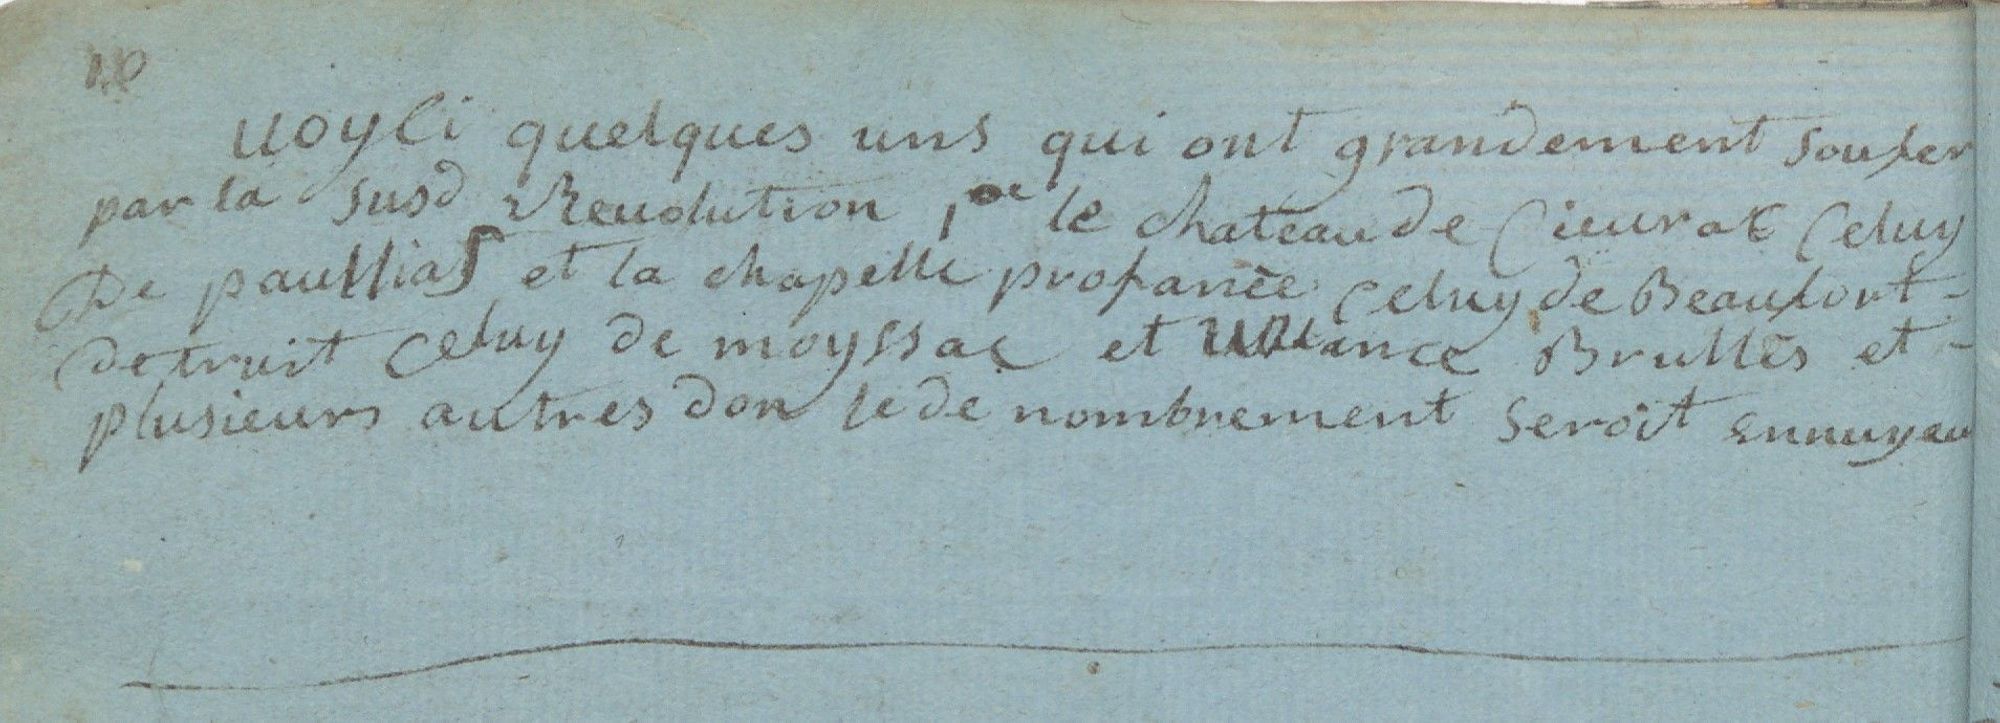 voyci quelques uns qui ont grandement soufer
par la susd Revolution, le chateau de Cieurac celuy
De paullias et la chapelle profanée celuy de Beaufort -
detruit celuy de moyssac et brullés et -
plusieurs autres don le de nombrement seroit ennuyeu